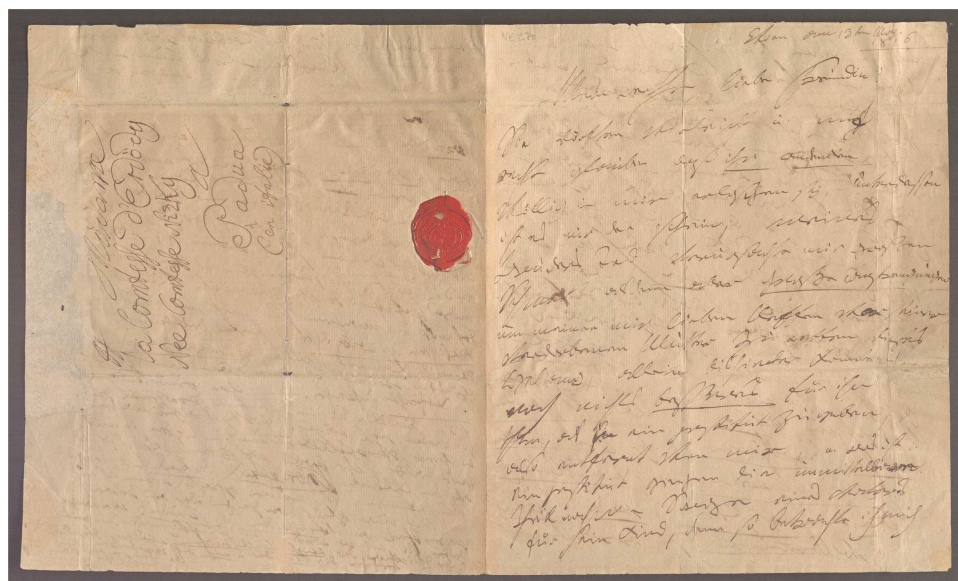 à Madame
la Comtesse d'Erdödy
Née Comtesse Niszky
à
Padua
(en italie)
NE 270
Wien den 13ten May
Meine werthe liebe Freundin
Sie dörften vieleicht u. mit
recht glauben daß ihr Andenken
völlig in mir erloschen sey, Unterdessen
ist es nur der schein, meines
Bruders Tod verursachte mir großen
Schmerz alsdann aber große Anstrengungen
um meinen mir lieben Neffen vor seiner
verdorbenen Mutter zu retten dieses
gelang, allein bis hieher konnte ich
noch nichts besseres für ihn
thun, als in ein Institut zu geben
also entfernt von mir, u. was ist
ein Institut gegen die unmittelbare
Theilnahme Sorge eines Vaters
für sein Kind, denn so betrachte ich mich